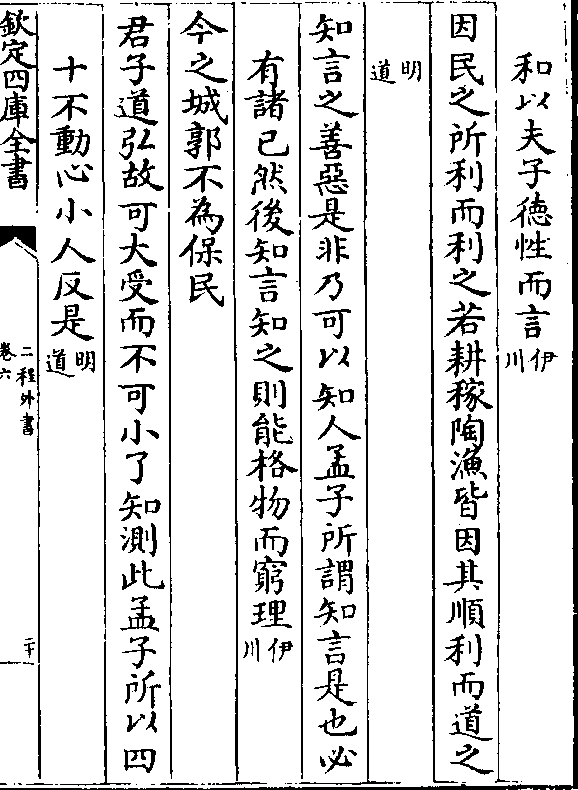 和以夫子德性而言伊川
因民之所利而利之若耕稼陶漁皆因其順利而道之
明道
知言之善惡是非乃可以知人孟子所謂知言是也必
有諸已然後知言知之則能格物而窮理伊川
今之城郭不為保民
君子道弘故可大受而不可小了知測此孟子所以四
十不動心小人反是明道
欽定四庫全書
二程外書
卷六
二十